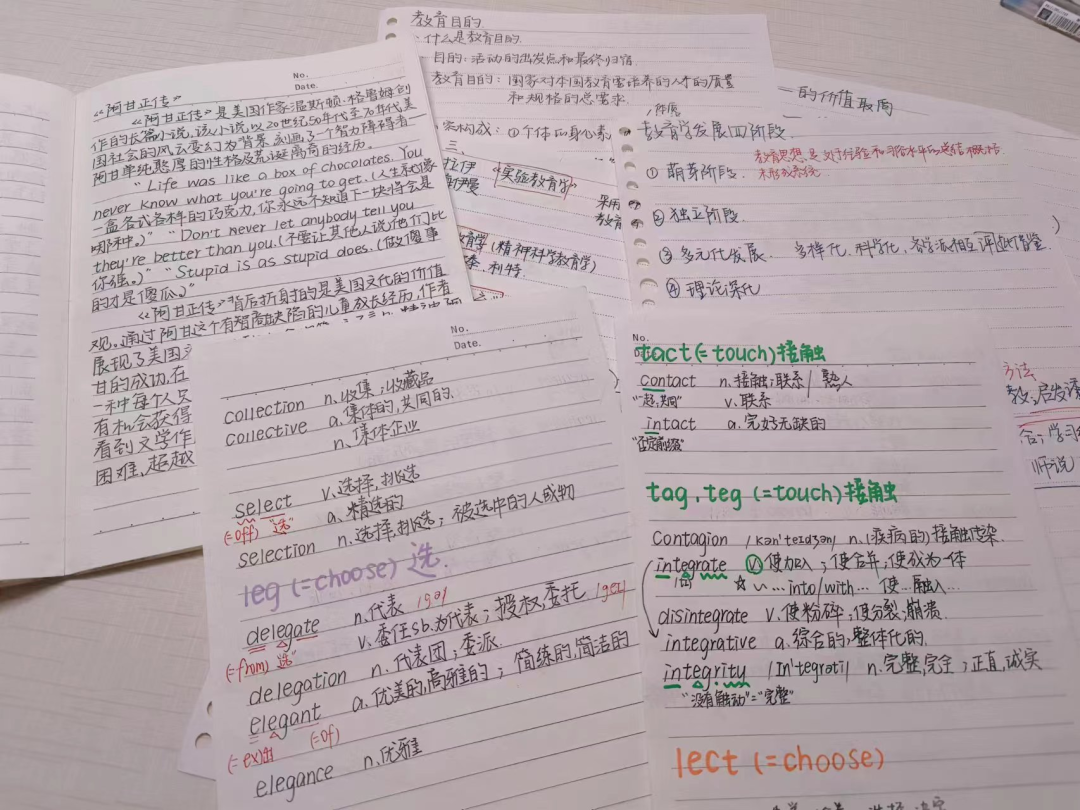 No.
Date.
《阿甘正传》
《阿甘正传》是美国作家温斯顿·格鲁姆创
作的长篇小说,该小说以20世纪50年代至70年代美
国社会的风云变幻为背景,刻画了一个智力障碍者—
阿甘单纯憨厚的性格及荒诞离奇的经历.
"Life was like a box of chocolates. You
never know what you're going to get.(人生就像
一盒各式各种的巧克力,你永远不知道下一块将会是
哪种。)" "Don't never let anybody tell you
they're better than you.(不要让其他人说他们比
你强。)" "Stupid is as stupid does.(做傻事
的才是傻瓜。)"
《阿甘正传》背后折射的是美国文化的价值
观。通过阿甘这个有智商缺陷的儿童成长经历,作者
展现了美国
甘的成功,在
一种每个人
有机会获得
看到文学作
困难、超越
教育目的
什么是教育目的.
目的:活动的出发点和最终归宿.
教育目的:国家对本国教育需培养的人才的质量
和规格的总要求.
三、
"实验教育学"
教育学(精神科学教育学)
利特.
的价值取向
教育学发展四阶段.
① 萌芽阶段.
教育思想是处于经验和习俗水平的总结概括.
未形成系统.
② 独立阶段.
③ 多元化发展. 多样化,科学化,各学派相互评低借鉴.
④ 理论深化
方法
师说
No.
Date.
collection n.收集;收藏品
collective a.集体的,共同的.
n.集体企业
select v.选择,挑选
a.精选的
(=off) "选"
selection n.选择,挑选;被选中的人或物
leg (=choose) 选.
delegate n.代表 /gət/
v.委任sb.为代表;授权,委托 /geɪt/
(=from) "选"
delegation n.代表团;委派
elegant a.优美的,高雅的;简练的,简洁的
(=ex)出 (=of)
elegance n.优雅
No.
tact (=touch) 接触
contact n.接触;联系/熟人
"一起,共同" v.联系
intact a.完好无缺的
"否定前缀"
tag, teg (=touch) 接触
contagion /kən'teɪdʒən/ n.(疾病的)接触传染.
integrate ⓥ 使加入;使合并;使成为一体
☆ ~ ... into/with... 使...融入...
disintegrate v.使粉碎;使分裂,崩溃
integrative a.综合的;整体化的.
integrity /ɪn'tegrəti/ n.完整,完全;正直,诚实
"没有触动"="完整"
lect (=choose)